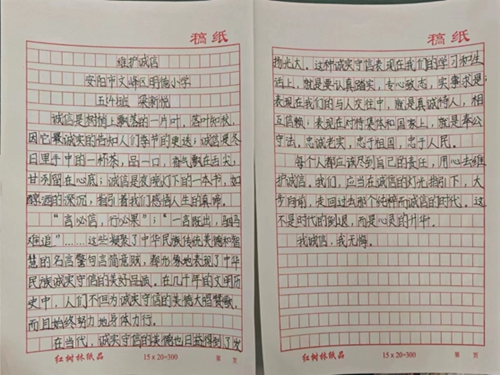 稿纸
维护诚信
安阳市文峰区明德小学
诚信是树梢上飘落的一片叶，落叶知秋，
因它最诚实的告知人们季节的更迭；诚信是冬
日里手中的一杯茶，品一口，香气飘在舌尖，
甘冽留在心底；诚信是夜晚灯下的一本书，如
醇酒的深沉，指引着我们感悟人生的真谛。
“言必信，行必果”；“一言既出，驷马
难追”……这些凝聚了中华民族传统美德和智
慧的名言警句言简意赅，都形象地表现了中华
民族诚实守信的美好品战。在几千年的文明历
史中，人们不但为诚实守信的美德大唱赞歌，
而且始终努力地身体力行。
在当代，诚实守信的美德也日益得到了发
红树林纸品
15 x 20=300
第 页
稿纸
扬光大。这种诚实守信表现在我们的学习和生
活上，就是要认真踏实，专心致志，实事求是；
表现在我们的与人交往中，就是真诚待人，相
互信赖；表现在对待集体和国家上，就是奉公
守法，忠诚老实，忠于祖国，忠于人民。
每个人都应该尽到自己的责任，用心去维
护诚信。我们，应当在诚信的灯光指引下，大
步向前，走回过去那个纯粹而诚信的时代，这
不是时代的倒退，而是心灵的升华。
我诚信，我无悔。
红树林纸品
15 x 20=300
第 页